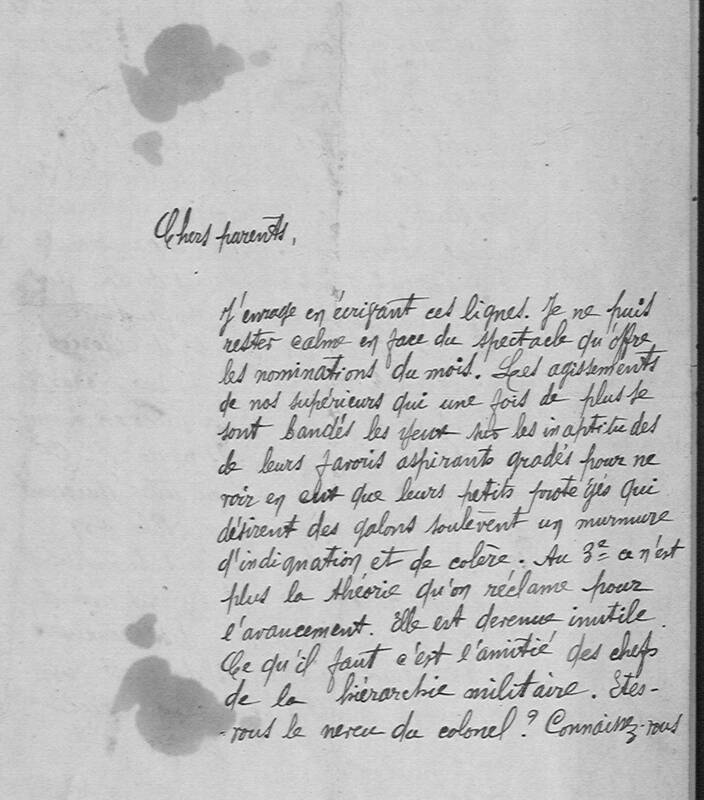 Chers parents,
J'enrage en écrivant ces lignes. Je ne puis
rester calme en face du spectacle qu'offre
les nominations du mois. Les agissements
de nos supérieurs qui une fois de plus se
sont bandés les yeux sur les inaptitudes
de leurs favoris aspirants gradés pour ne
voir en eux que leurs petits protégés qui
désirent des galons soulèvent un murmure
d'indignation et de colère. Au 3e ce n'est
plus la théorie qu'on réclame pour
l'avancement. Elle est devenue inutile.
Ce qu'il faut c'est l'amitié des chefs
de la hiérarchie militaire. Etes-
-vous le neveu du colonel ? Connaissez-vous